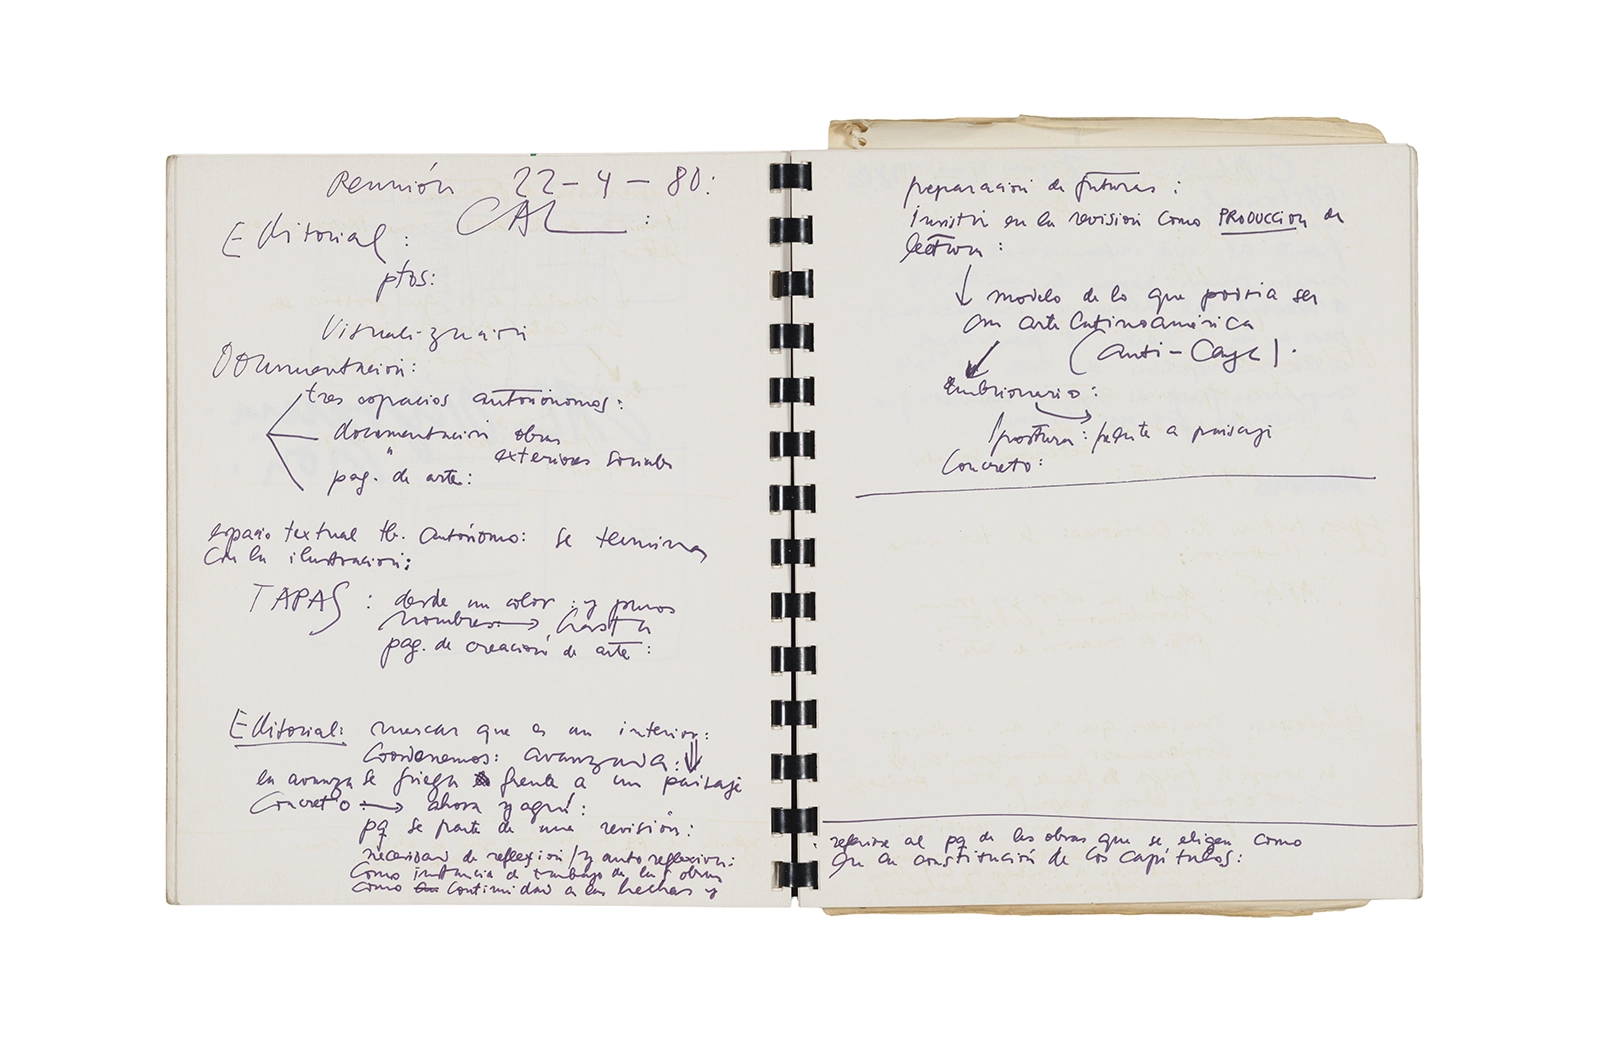 Reunión 22-4-80:
CAL :
Editorial :
ptos:
Visualización
Documentación:
tres espacios autónomos:
documentación obras
" exteriores sociales
pag. de arte:
espacio textual tb. autónomo: se termina
con la ilustración:
TAPAS : desde un color : y puros
nombres → hasta
pag. de creación de arte:
Editorial: que es un interior:
avanzada:
la avanza se frente a un paisaje
Concreto → ahora y aquí:
pq se parte de una revisión:
necesidad de reflexión/y auto reflexión:
como instancia de trabajo de las obras
como continuidad a las hechas y
preparación de futuras :
Insistir en la revisión como PRODUCCION de
lectura :
↓ modelo de lo que podria ser
un arte latinoamérica
(anti-Cayc).
embrionario :
postura : frente a paisaje
Concreto:
referirse al pq de las obras que se eligen como
en la constitución de los capítulos: